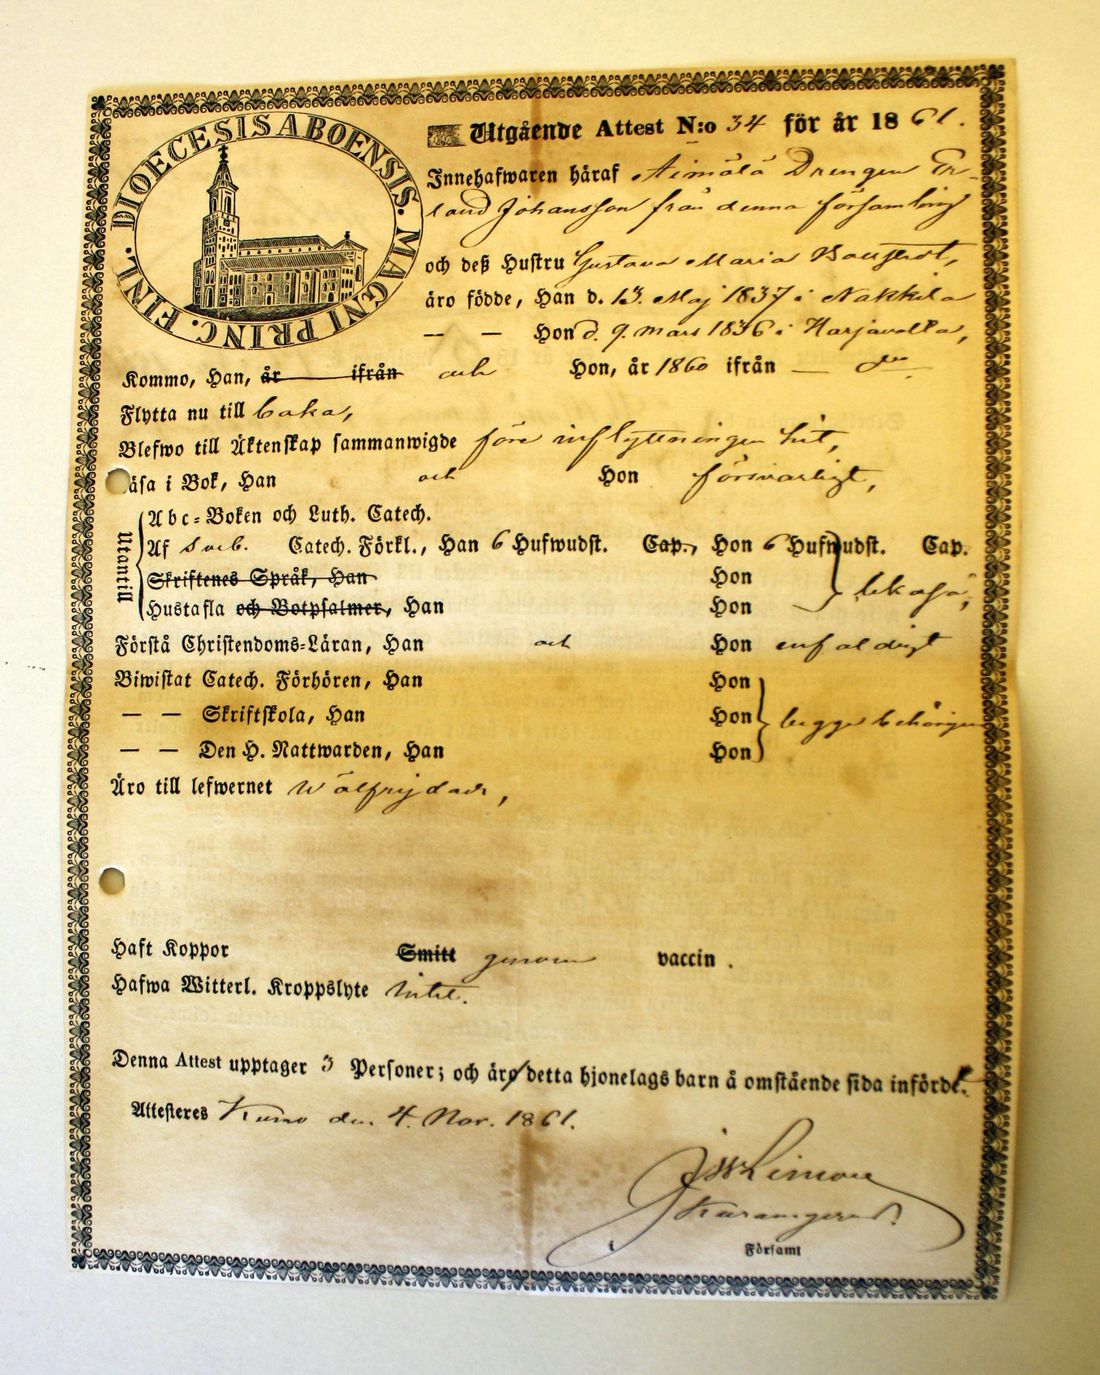 DIOECESIS ABOENSIS. MAGNI PRINC. FINL.
Utgående Attest N:o 34 för år 1861.
Innehafwaren häraf Äimälä Drengen Er-
land Johansson från denna församling
och deß Hustru Gustava Maria
äro födde, Han d. 13. Maj 1837 i Nakkila
— — Hon d. 9. mars 1836 i Harjavalla,
Kommo, Han, år ifrån och Hon, år 1860 ifrån —
Flytta nu till
Blefwo till Äktenskap sammanwigde före inflyttningen hit,
äsa i Bok, Han och Hon försvarligt,
Utantill
Abc-Boken och Luth. Catech.
Af Sveb. Catech. Förkl., Han 6 Hufwudst. Cap., Hon 6 Hufwudst. Cap.
Skriftenes Språk, Han Hon
Hustafla och Botpsalmer, Han Hon
Förstå Christendoms-Läran, Han och Hon enfaldigt
Biwistat Catech. Förhören, Han Hon
— — Skriftskola, Han Hon begge behörigen
— — Den H. Nattwarden, Han Hon
Äro till lefwernet wälfrejdade,
Haft Koppor Smitt genom vaccin.
Hafwa Witterl. Kroppslyte intet.
Denna Attest upptager 3 Personer; och äro detta hjonelags barn å omstående sida införde.
Attesteres Kumo den 4. Nov. 1861.
Församl